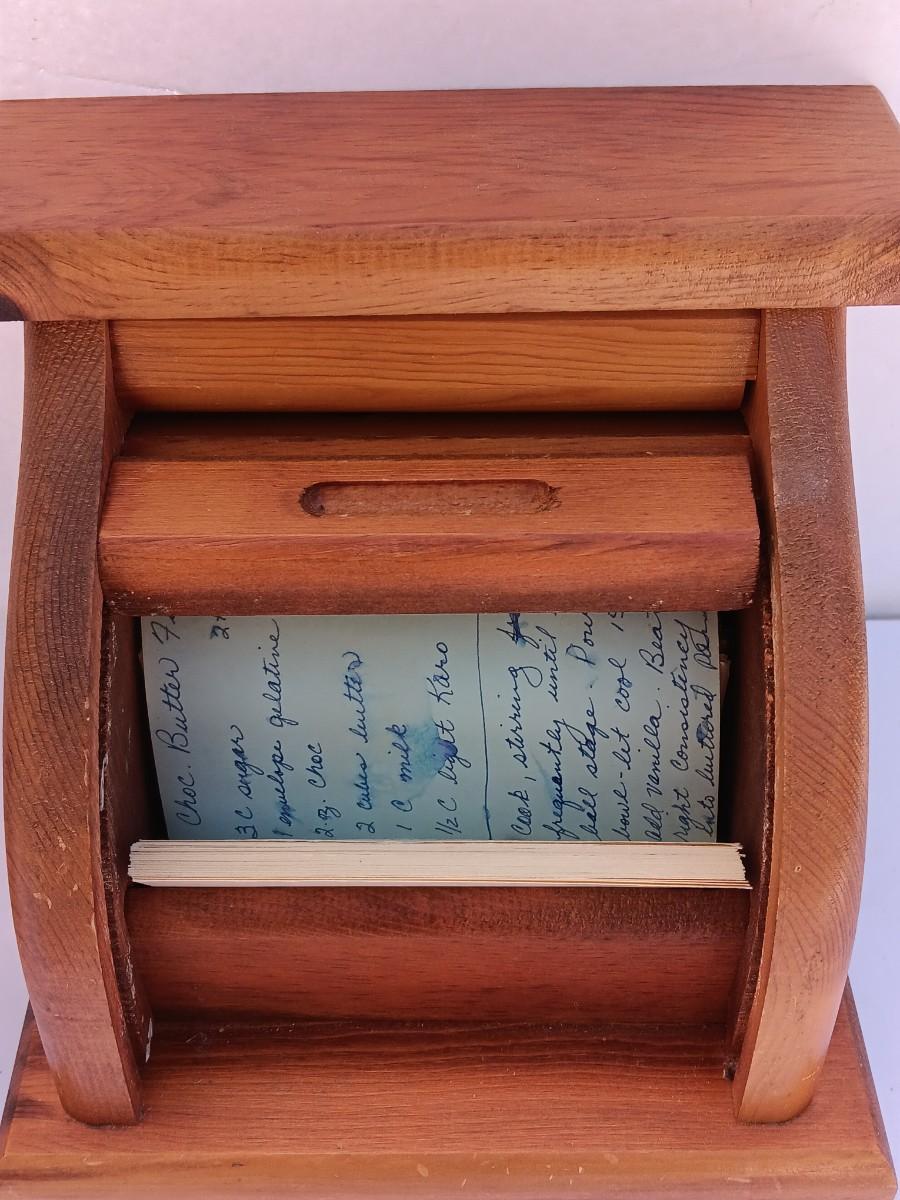 Choc. Butter
3 C sugar
1 envelope gelatine
2 oz. Choc
2 cubes butter
1 C milk
1/2 C light Karo
Cook, stirring
frequently until
ball stage. Pour
bowl - let cool
add vanilla. Beat
right consistency
into buttered